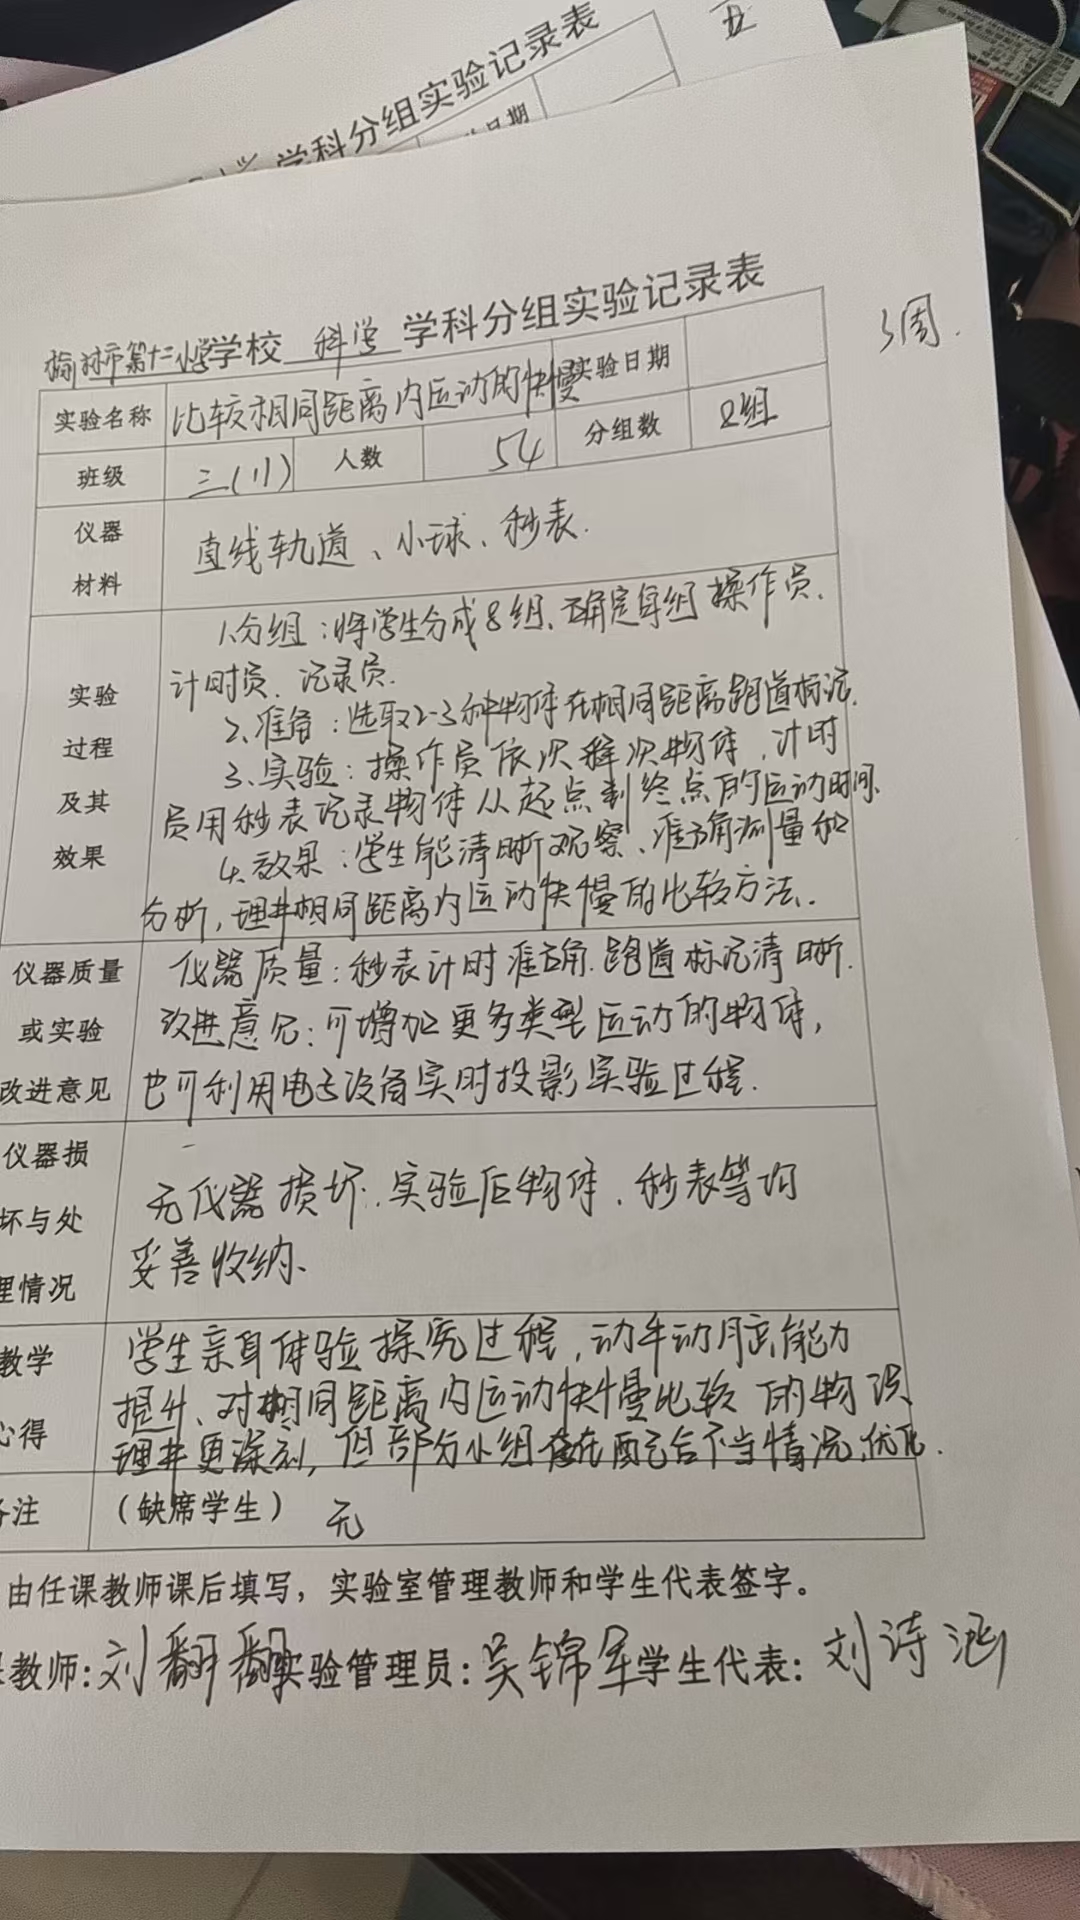 五
学科分组实验记录表
日期
3周.
榆林市第十二小学学校 科学 学科分组实验记录表
实验名称 比较相同距离内运动的快慢 实验日期
班级 三(11) 人数 54 分组数 8组
仪器
材料
直线轨道、小球、秒表.
实验
过程
及其
效果
1.分组:将学生分成8组、确定每组操作员.
计时员.记录员.
2.准备:选取2-3种物体在相同距离跑道标记.
3.实验:操作员依次释次物体,计时
员用秒表记录物体从起点到终点的运动时间.
4.效果:学生能清晰观察、准确测量和
分析,理井相同距离内运动快慢的比较方法.
仪器质量
或实验
改进意见
仪器质量:秒表计时准确.跑道标记清晰.
改进意见:可增加更多类型运动的物体,
也可利用电子设备实时投影实验过程.
仪器损
坏与处
理情况
无仪器损坏.实验后物体、秒表等均
妥善收纳.
教学
心得
学生亲身体验探究过程,动手动脑能力
提升、对相同距离内运动快慢比较的物识
理井更深刻,但部分小组存在配合不当情况,优化.
备注
(缺席学生) 无
由任课教师课后填写,实验室管理教师和学生代表签字。
教师:刘翻翻 实验管理员:吴锦军 学生代表:刘诗涵